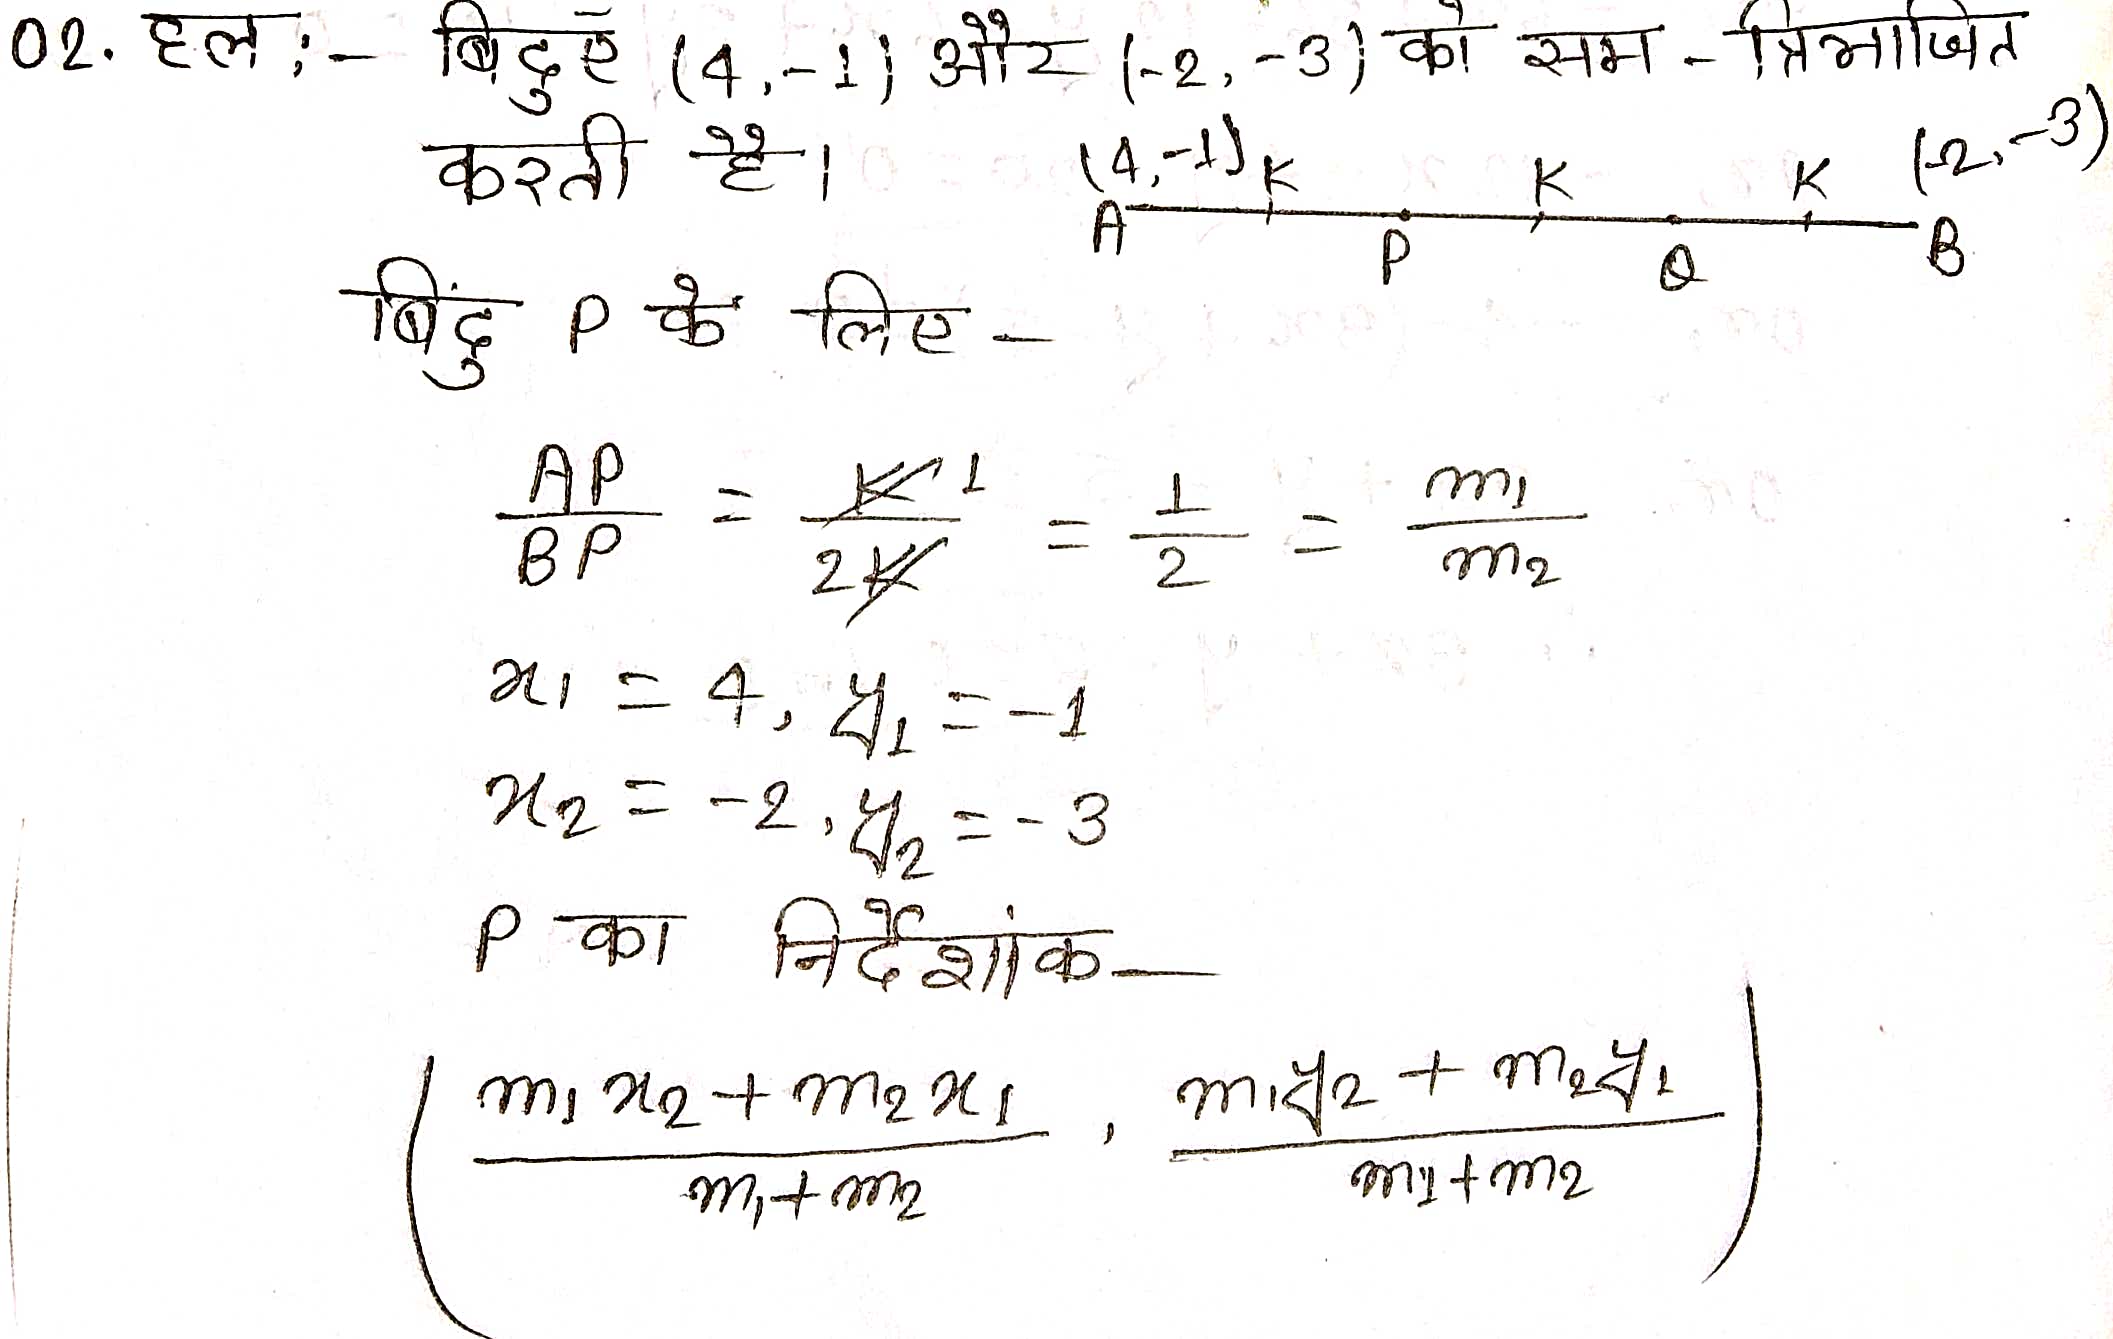 02. हल :- बिंदुएँ (4, -1) और (-2, -3) को सम - त्रिभाजित
करती है।
(4, -1) K K K (-2, -3)
A P Q B
बिंदु P के लिए -
AP/BP = K 1/2K = 1/2 = m1/m2
x1 = 4, y1 = -1
x2 = -2, y2 = -3
P का निर्देशांक —
(m1 x2 + m2 x1 / m1 + m2 , m1 y2 + m2 y1 / m1 + m2)